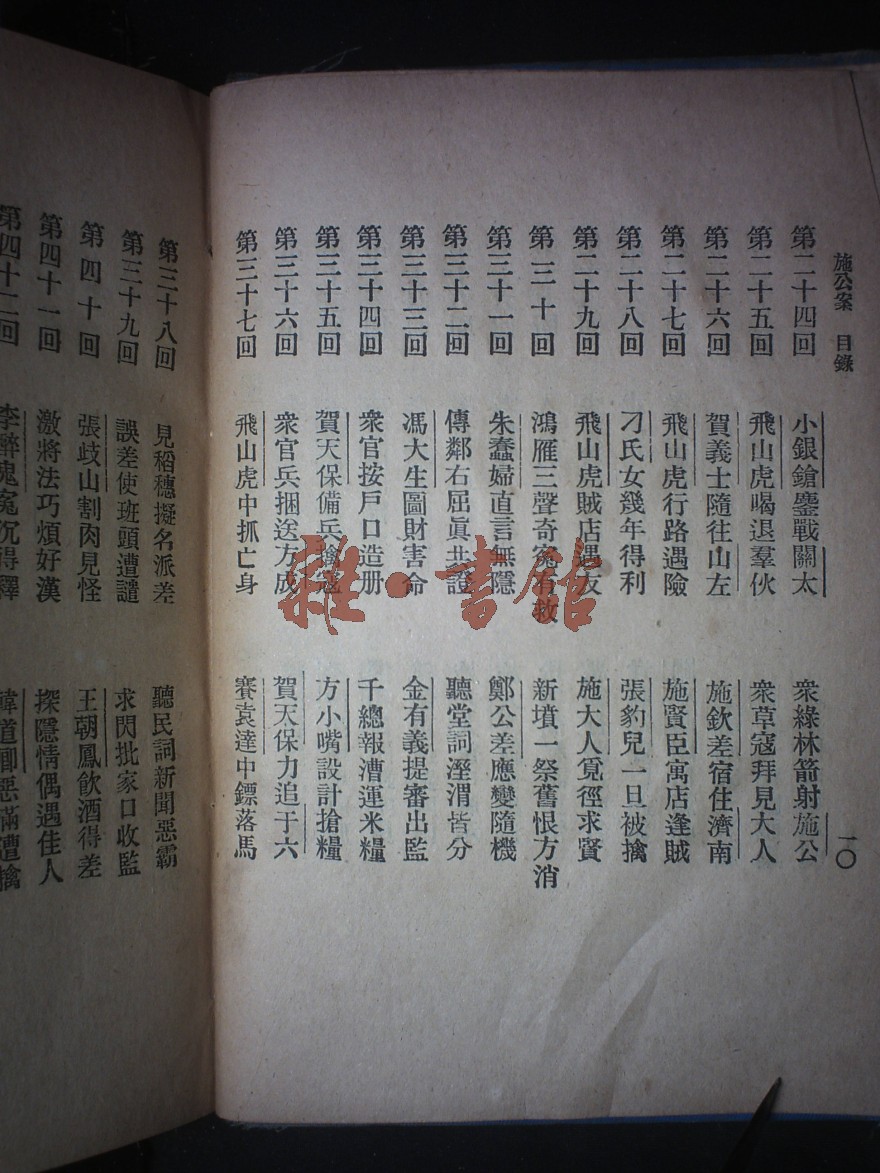 施公案 目錄
一〇
第二十四回 小銀鎗鏖戰關太 衆綠林箭射施公
第二十五回 飛山虎喝退羣伙 衆草寇拜見大人
第二十六回 賀義士隨往山左 施欽差宿住濟南
第二十七回 飛山虎行路遇險 施賢臣寓店逢賊
第二十八回 刁氏女幾年得利 張豹兒一旦被擒
第二十九回 飛山虎賊店遇友 施大人覓徑求賢
第三十回 鴻雁三聲奇寃有救 新墳一祭舊恨方消
第三十一回 朱蠢婦直言無隱 鄭公差應變隨機
第三十二回 傳鄰右屈眞共證 聽堂詞溼渭皆分
第三十三回 馮大生圖財害命 金有義提審出監
第三十四回 衆官按戶口造册 千總報漕運米糧
第三十五回 賀天保備兵擒寇 方小嘴設計搶糧
第三十六回 衆官兵捆送方成 賀天保力追于六
第三十七回 飛山虎中抓亡身 賽袁達中鏢落馬
第三十八回 見稻穗擬名派差 聽民詞新聞惡霸
第三十九回 誤差使班頭遭譴 求閃批家口收監
第四十回 張歧山割肉見怪 王朝鳳飲酒得差
第四十一回 激將法巧煩好漢 探隱情偶遇佳人
第四十二回 李醉鬼寃沉得釋 韓道卿惡滿遭擒
雜·書館